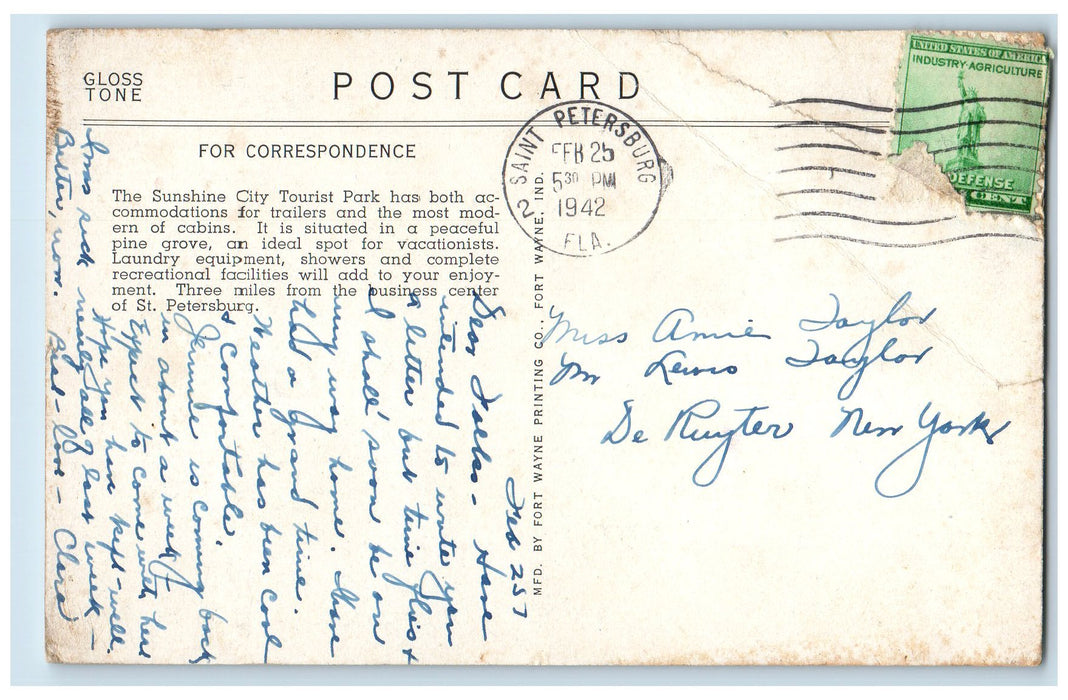 GLOSS
TONE
POST CARD
FOR CORRESPONDENCE
The Sunshine City Tourist Park has both ac-
commodations for trailers and the most mod-
ern of cabins. It is situated in a peaceful
pine grove, an ideal spot for vacationists.
Laundry equipment, showers and complete
recreational facilities will add to your enjoy-
ment. Three miles from the business center
of St. Petersburg.
MFD. BY FORT WAYNE PRINTING CO., FORT WAYNE, IND.
SAINT PETERSBURG
FEB 25
5 30 PM
1942
FLA.
2
UNITED STATES OF AMERICA
INDUSTRY-AGRICULTURE
DEFENSE
CENT
Miss Annie Taylor
Mr Lewis Taylor
De Ruyter New York
Feb 25
Dear Folks - Have
intended to write you
a letter but time flies +
I shall soon be on
my way home. Have
had a grand time.
Weather has been cool
& comfortable.
Jennie is coming back
in about a week I
expect to come with her
Hope you have kept well.
I was sick nearly all of last week -
Better, now. Best - love - Clara